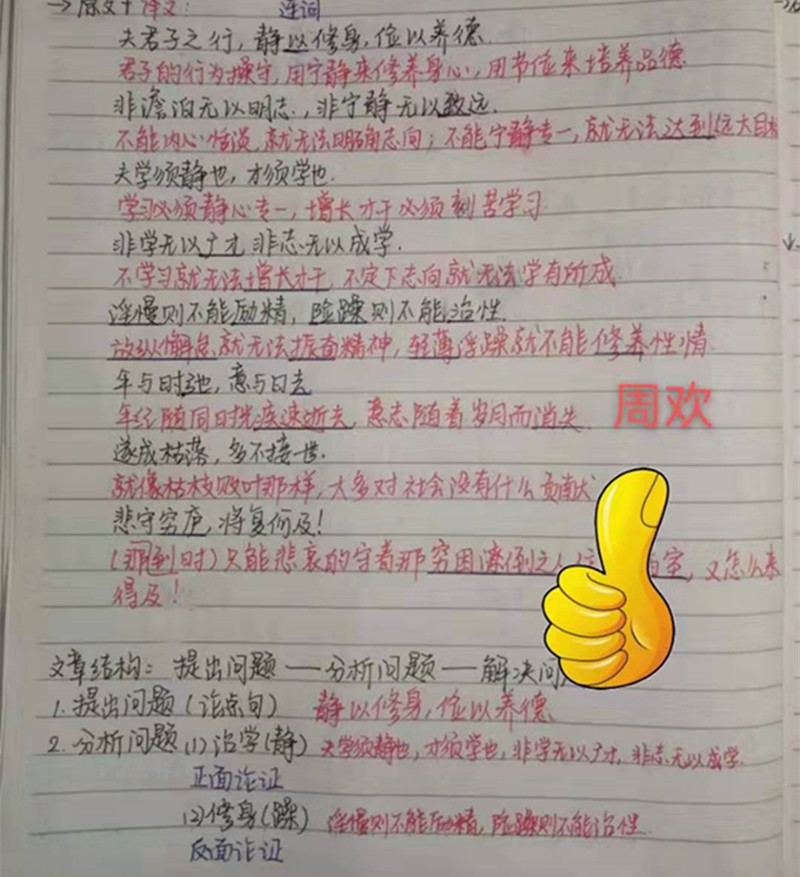 →原文+译文：  连词
夫君子之行，静以修身，俭以养德.
君子的行为操守，用宁静来修养身心，用节俭来培养品德.
非澹泊无以明志，非宁静无以致远.
不能内心恬淡，就无法明确志向；不能宁静专一，就无法达到远大目标
夫学须静也，才须学也.
学习必须静心专一，增长才干必须刻苦学习.
非学无以广才，非志无以成学.
不学习就无法增长才干，不定下志向就无法学有所成.
淫慢则不能励精，险躁则不能治性.
放纵懈怠就无法振奋精神，轻薄浮躁就不能修养性情.
年与时驰，意与日去
年纪随同时光疾速逝去，意志随着岁月而消失.
周欢
遂成枯落，多不接世.
就像枯枝败叶那样，大多对社会没有什么贡献
悲守穷庐，将复何及！
（那到时）只能悲哀的守着那穷困潦倒之人，又怎么来
得及！
文章结构：提出问题——分析问题——解决问
1.提出问题（论点句） 静以修身，俭以养德
2.分析问题(1)治学(静) 夫学须静也，才须学也，非学无以广才，非志无以成学.
正面论证
(2)修身(躁) 淫慢则不能励精，险躁则不能治性.
反面论证